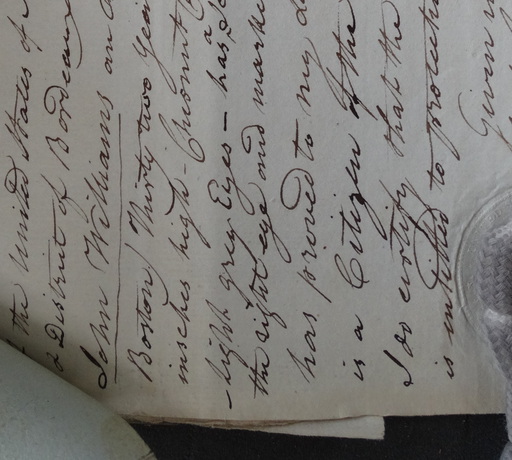 the United States of
a District of Bordeaux
John Williams an
Boston / Thirty two Yea
inches high -
light grey Eyes - has a
the right eye and marke
has proved to my
is a Citizen of the
I do certify that the
is intitled to protecti
Given u